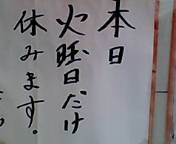 本日
火曜日だけ
休みます。